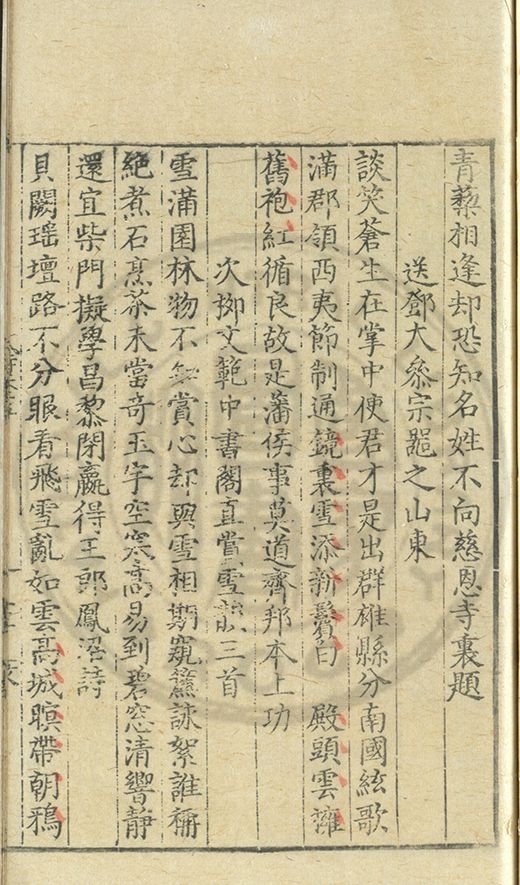 青藜相逢却恐知名姓不向慈恩寺裏題
送鄧大叅宗噐之山東
談笑蒼生在掌中使君才是出群雄縣分南國絃歌
滿郡領西夷節制通鏡裏雪添新鬢白殿頭雲擁
舊袍紅循良故是藩侯事莫道齊邦本上功
次柳文範中書閣直賞雪韻三首
雪滿園林物不賞心却與雪相期窺簾詠絮誰稱
絶煮石烹茶未當奇玉宇空寒高易到碧窓清響靜
還宜柴門擬學昌黎閉贏得王郎鳳沼詩
貝闕瑶壇路不分眼看飛雪亂如雲髙城暝帶朝鴉